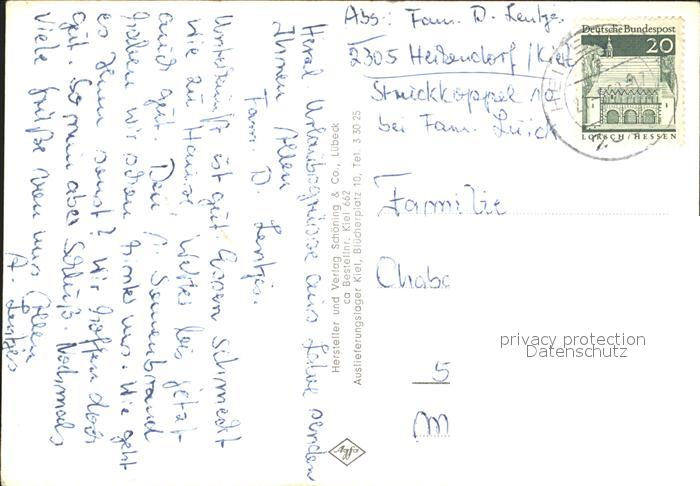 Abs: Fam. D. Lentjes
2305 Heikendorf / Kiel
Strickkoppel 10
bei Fam.
Deutsche Bundespost
20
LORSCH / HESSEN
Familie
Chabe
5
M
privacy protection
Datenschutz
Herzl. Urlaubsgrüsse aus Laboe senden
Ihnen Allen
Fam. D. Lentjes.
Unterkunft ist gut. Essen schmeckt
wie zu Hause. Wetter bis jetzt
auch gut. Den 1. Sonnenbrand
haben wir schon hinter uns. Wie geht
es Ihnen sonst? Wir hoffen doch
gut. So nun aber Schluß. Nochmals
viele Grüße von uns Allen
A. Lentjes
Hersteller und Verlag Schöning & Co., Lübeck
ca Bestellnr. Kiel 662
Auslieferungslager Kiel, Blücherplatz 10, Tel. 3 30 25
Agfa